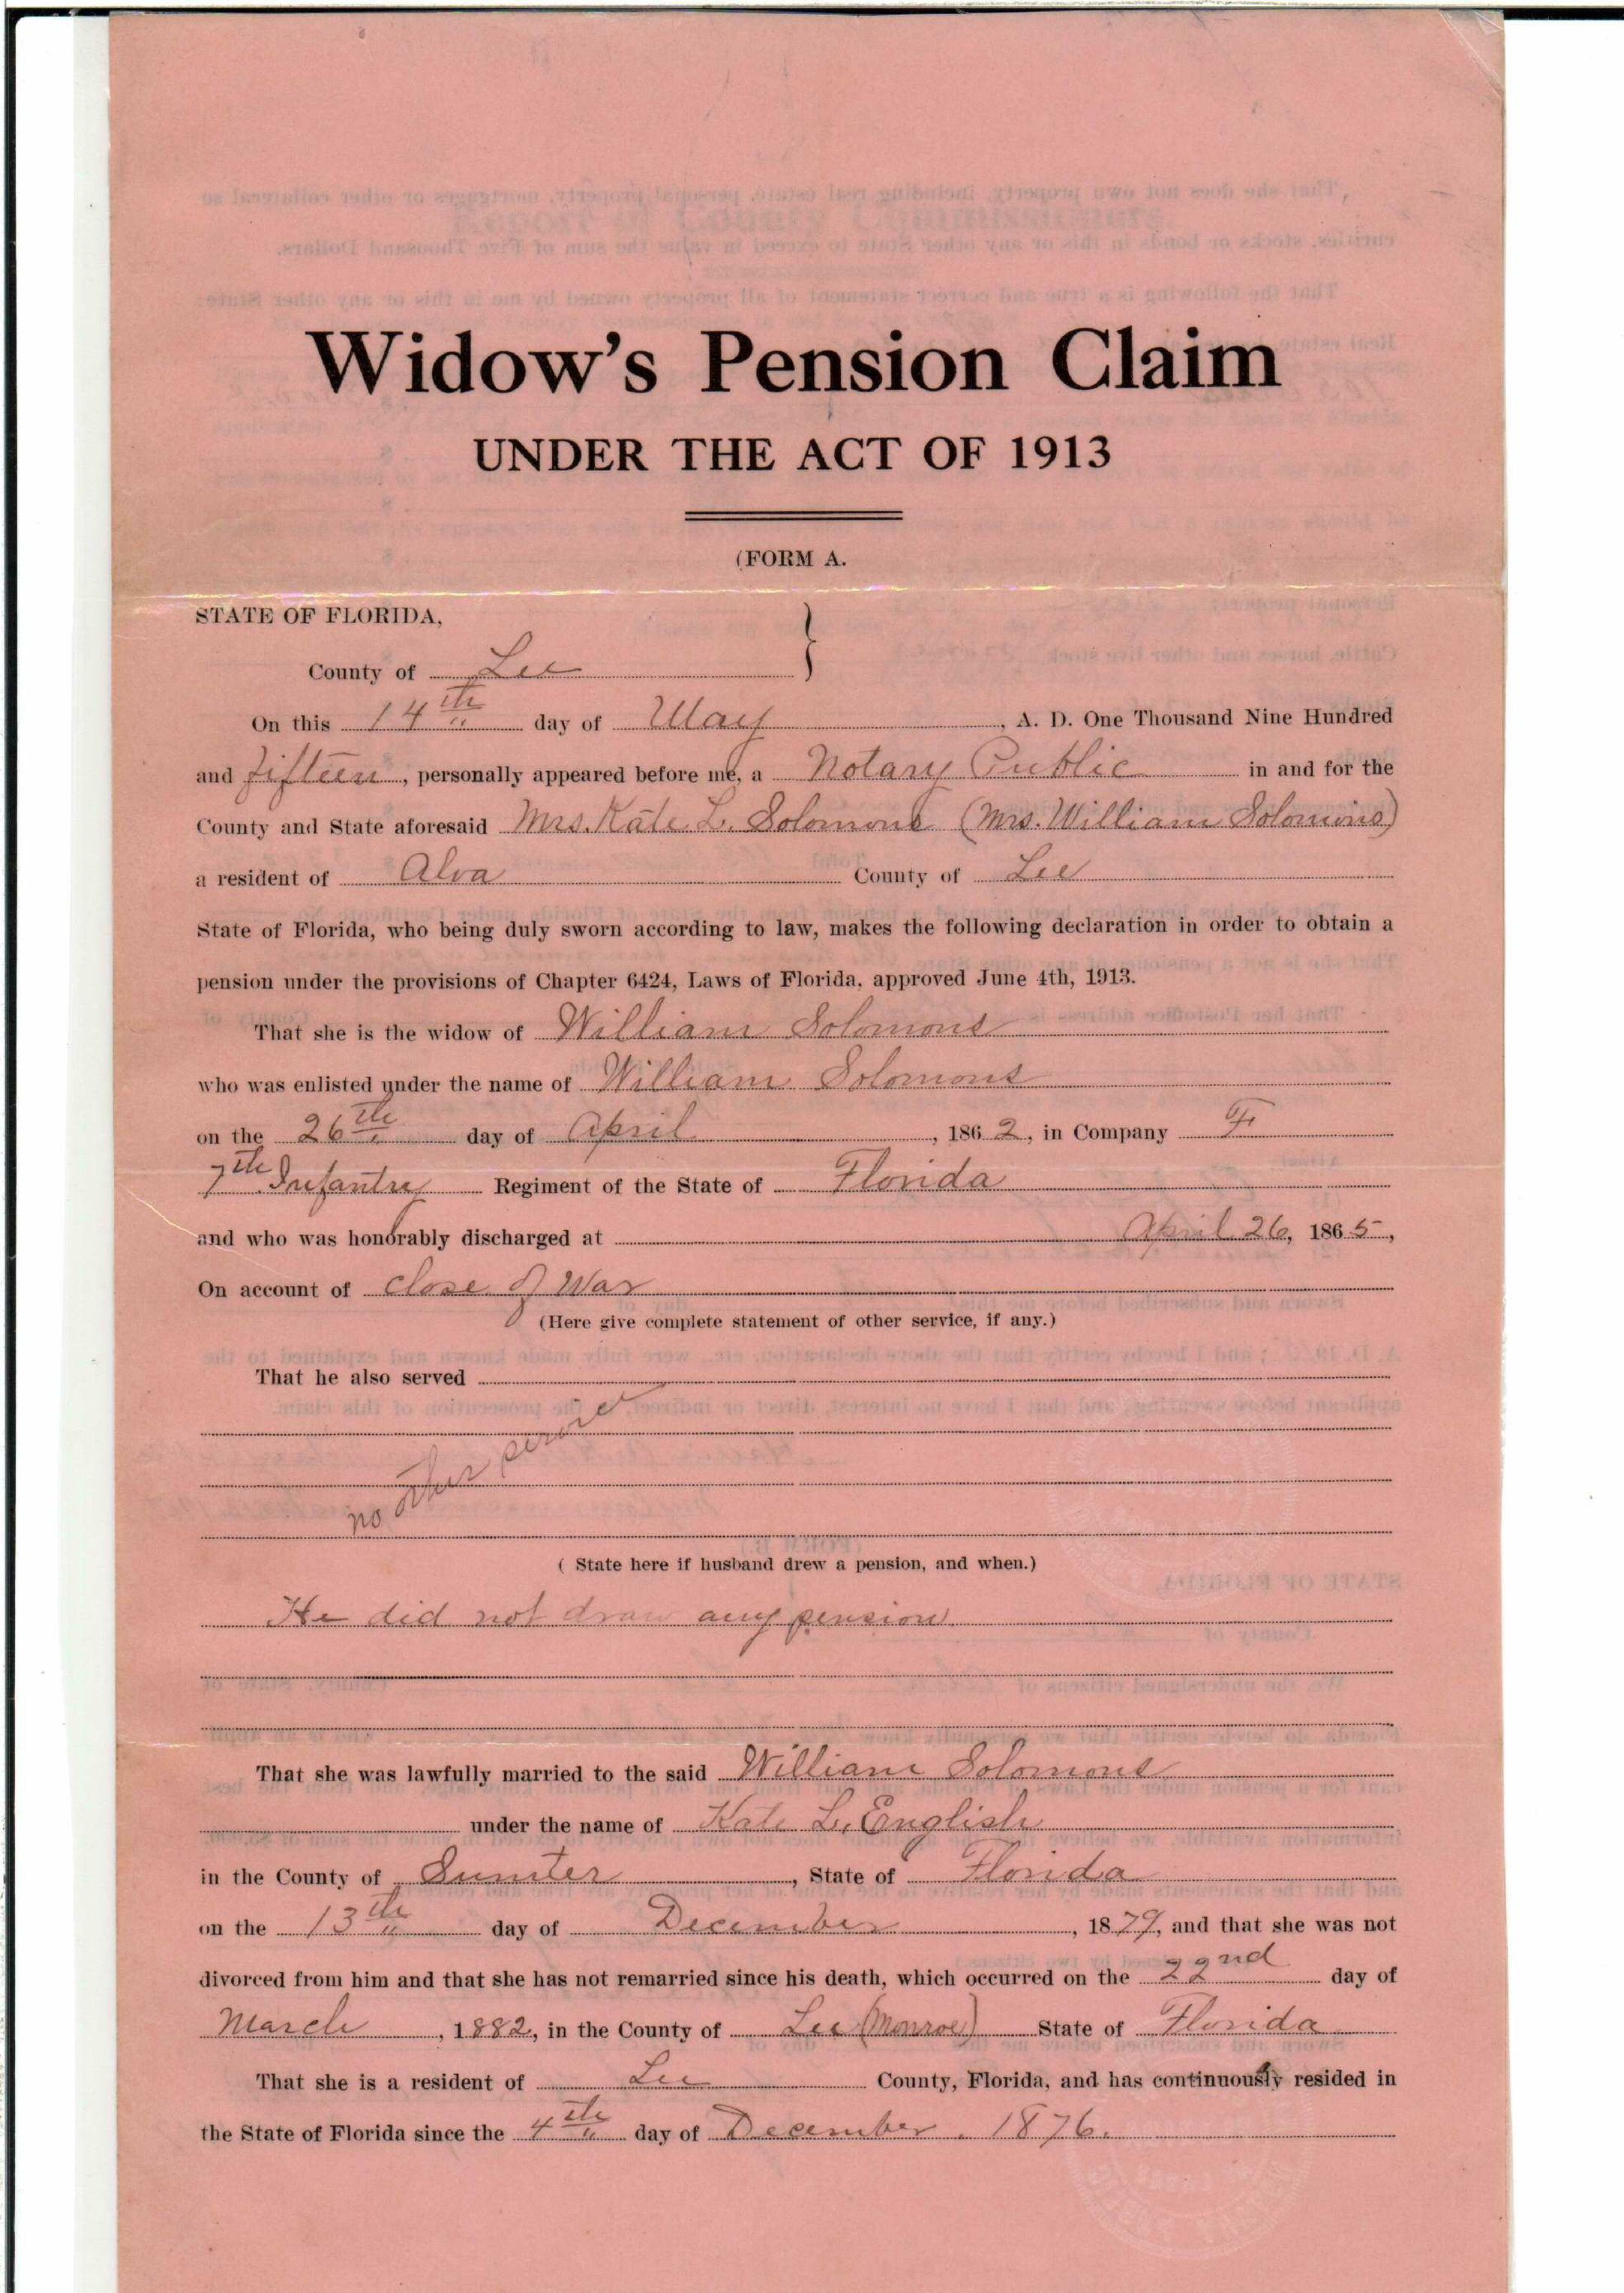 Widow's Pension Claim
UNDER THE ACT OF 1913
(FORM A.
STATE OF FLORIDA,
County of Lee
On this 14th day of May, A. D. One Thousand Nine Hundred
and fifteen, personally appeared before me, a Notary Public in and for the
County and State aforesaid Mrs. Kate L. Solomons (Mrs. William Solomons)
a resident of Alva County of Lee
State of Florida, who being duly sworn according to law, makes the following declaration in order to obtain a
pension under the provisions of Chapter 6424, Laws of Florida, approved June 4th, 1913.
That she is the widow of William Solomons
who was enlisted under the name of William Solomons
on the 26th day of April, 1862, in Company F
7th Infantry Regiment of the State of Florida
and who was honorably discharged at April 26, 1865,
On account of close of War
(Here give complete statement of other service, if any.)
That he also served
no other service
( State here if husband drew a pension, and when.)
He did not draw any pension
That she was lawfully married to the said William Solomons
under the name of Kate L. English
in the County of Sumter, State of Florida
on the 13th day of December, 1879, and that she was not
divorced from him and that she has not remarried since his death, which occurred on the 22nd day of
March, 1882, in the County of Lee (Monroe) State of Florida
That she is a resident of Lee County, Florida, and has continuously resided in
the State of Florida since the 4th day of December, 1876.